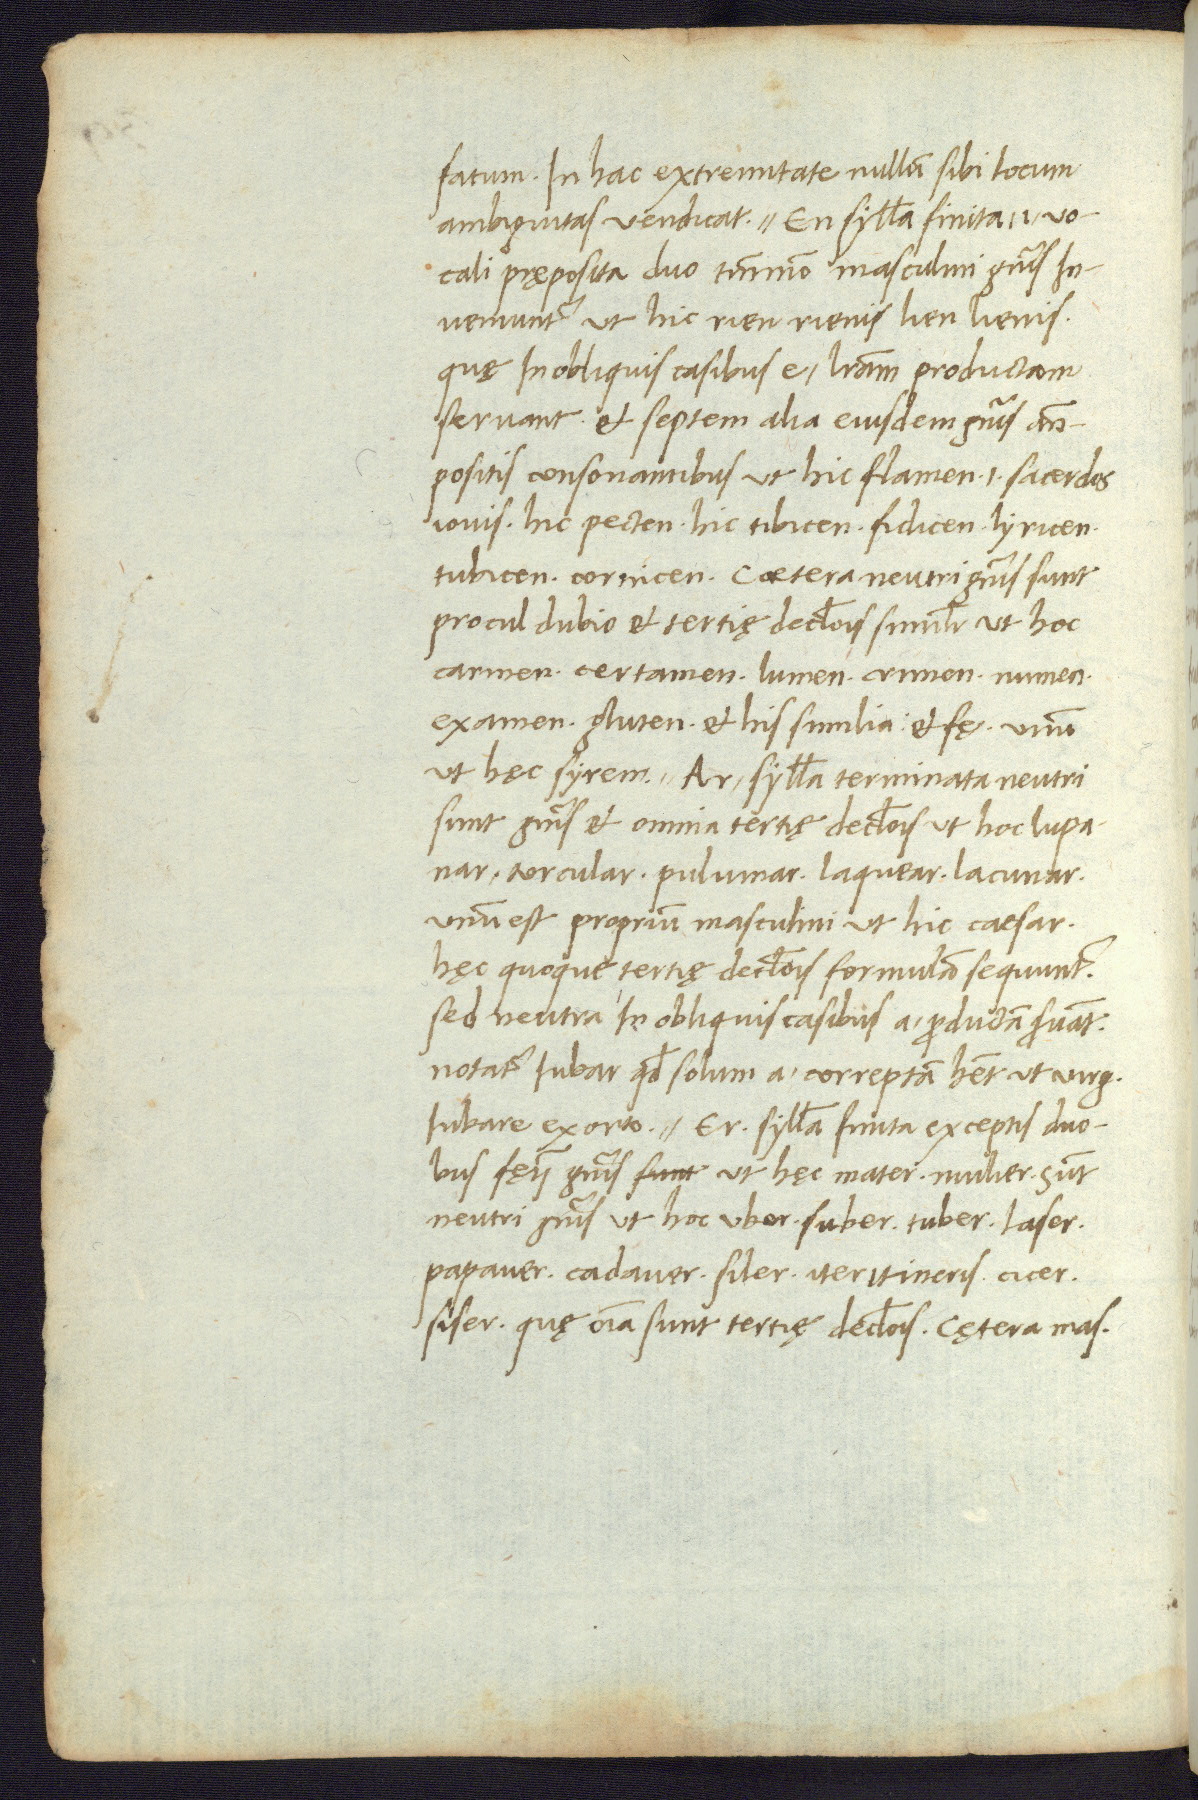 fatum. In hac extremitate nullū sibi locum
ambiguitas vendicat. // En syll̄a finita, i, vo-
cali pręposita duo tm̄mō masculini gn̄is In-
veniunt᷑ ut hic rien rienis lien lienis.
quę In obliquis casibus e, lr̄am productam
servant. et septem alia eiusdem gn̄is an̄-
positis consonantibus ut hic flamen .i. sacerdos
iovis. hic pecten. hic tibicen. fidicen. lyricen.
tubicen. cornicen. Cætera neutri gn̄is sunt
procul dubio et tertię decl̄ois simil̄r ut hoc
carmen. certamen. lumen. crimen. numen.
examen. gluten. et his similia: et fę. unū
ut hęc syrem. // Ar, syll̄a terminata neutri
sunt gn̄is et omnia tertię decl̄ois ut hoc lupa-
nar, torcular. pulvinar. laquear. lacunar.
unū est propriū masculini ut hic caesar.
hęc quoque tertię decl̄ois formulā sequunt᷑.
sed neutra In obliquis casibus a, ꝓductā ẜuāt.
notat᷑ Iubar qd̄ solum a, correptā hēt ut virg.
Iubare exorto. // Er. syll̄a finita exceptis duo-
bus fęīj gn̄is sunt ut hęc mater. mulier. Sūt
neutri gn̄is ut hoc uber. suber. tuber. laser.
papaver. cadaver. siler. iter itineris. cicer.
siser. quę oīa sunt tertię decl̄ois. Cętera mas.